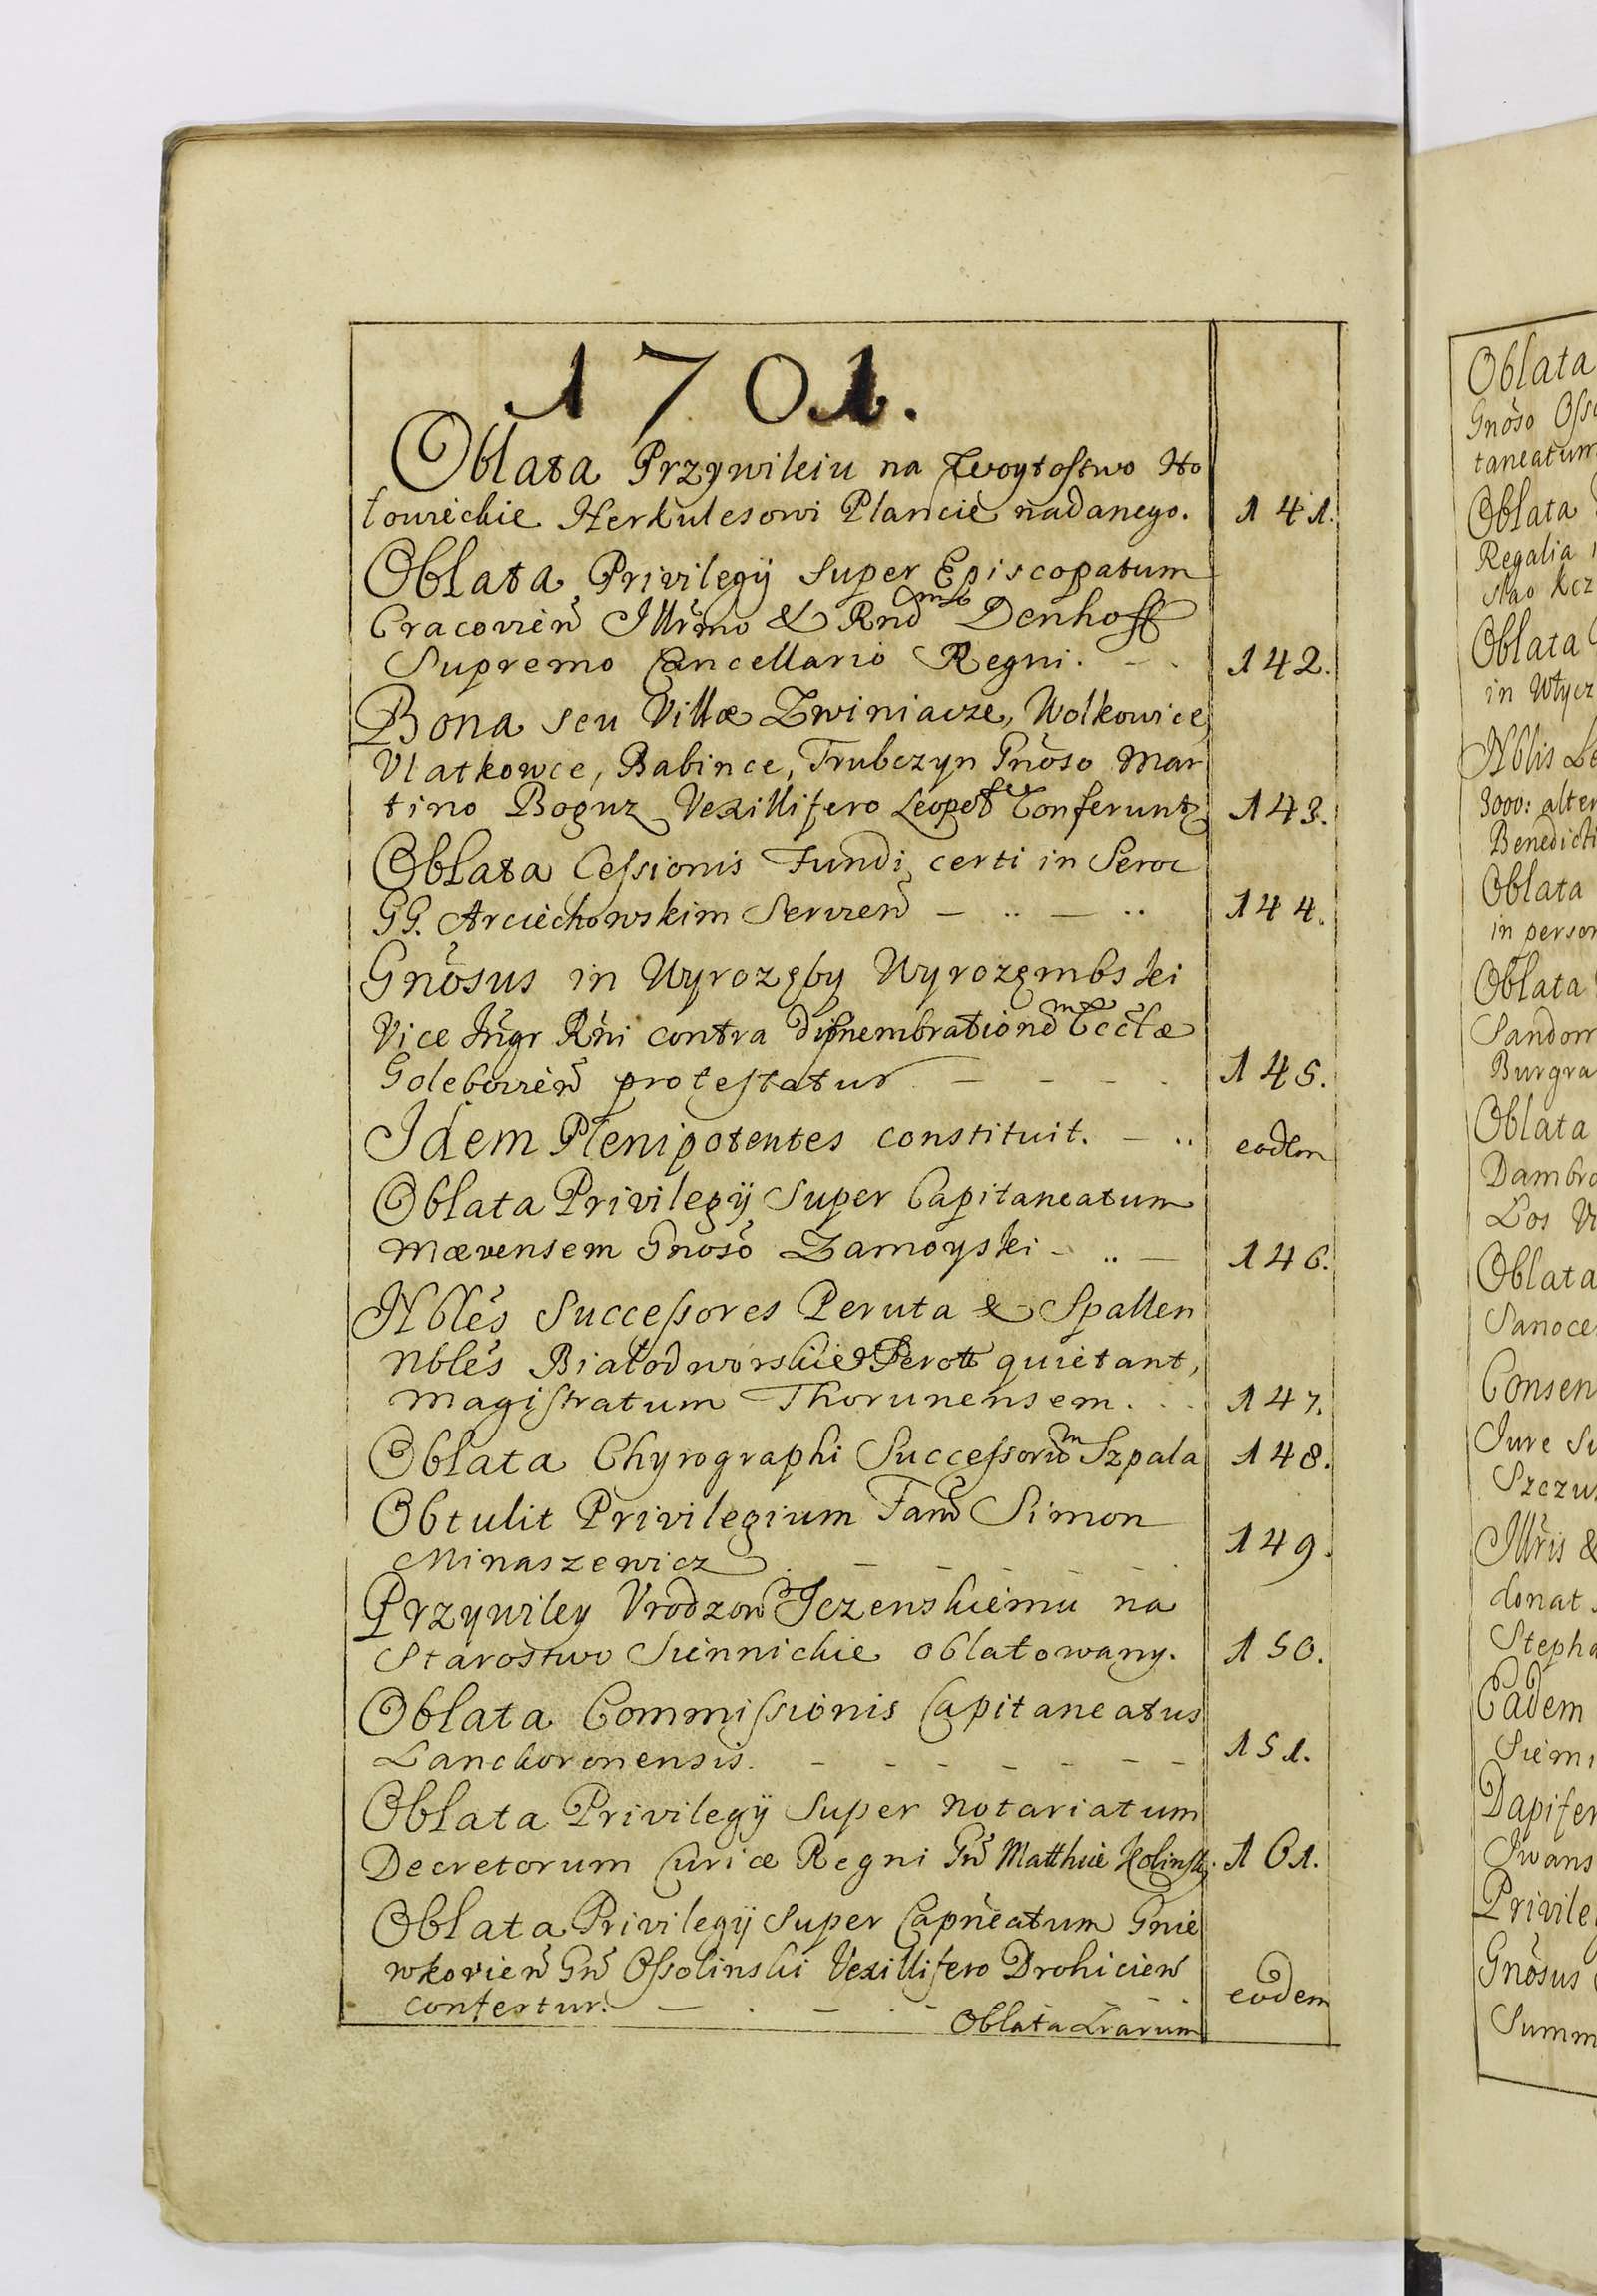 1701.
Oblata Przywileiu na Woytostwo Ho
łowieckie Herkulesowi Plancie nadanego. 141.
Oblata Privilegÿ super Episcopatum
Cracovień Illr̃mo & Rnd̃mo Denhoff
Supremo Cancellario Regni. 142.
Bona seu Villæ Zwiniacze, Wolkowice,
Vlatkowce, Babince, Trubczyn Gnõso Mar
tino Boguz Vexillifero Leopol Conferunt 143.
Oblata Cessionis Fundi certi in Seroc
GG. Arciechowskim Servień 144.
Gnõsus in Wyrozęby Wyrozęmbski
Vice Ĩngr Rñi contra dismembrationem Ecclæ
Golebovień protestatur 145.
Idem Plenipotentes constituit. eodem
Oblata Privilegÿ Super Capitaneatum
Mævensem Gnõso Zamoyski 146.
Nblẽs Successores Peruta & Spallen
Nblẽs Białodworskie & Perott quietant,
Magistratum Thorunensem. 147.
Oblata Chyrographi Successorum Szpala 148.
Obtulit Privilegium Famt̃ Simon
Minaszewicz 149.
Przywiley Vrodzoñ Jezenskiemu na
Starostwo Siennickie oblatowany. 150.
Oblata Commissionis Capitaneatus
Lanckoronensis. 151.
Oblata Privilegÿ Super Notariatum
Decretorum Curiæ Regni Gñ Matthiæ Kolinsk. 161.
Oblata Privilegÿ Super Capñeatum Gnie
wkovień Gñ Ossolinski Vexillifero Drohicień
confertur. eodem
Oblata Lrarum
Oblata
Gnõso Oss
taneatum
Oblata
Regalia
slao Kcz
Oblata
in Włycz
Nblis Le
3000: alter
Benedicti
Oblata
in person
Oblata
Sandom
Burgra
Oblata
Dambro
Los
Oblata
Sanoce
Consen
Jure Su
Szczu
Illr̃is &
donat
Stepha
Eadem
Siemi
Dapifer
Iwans
Privile
Gnõsus
Summ